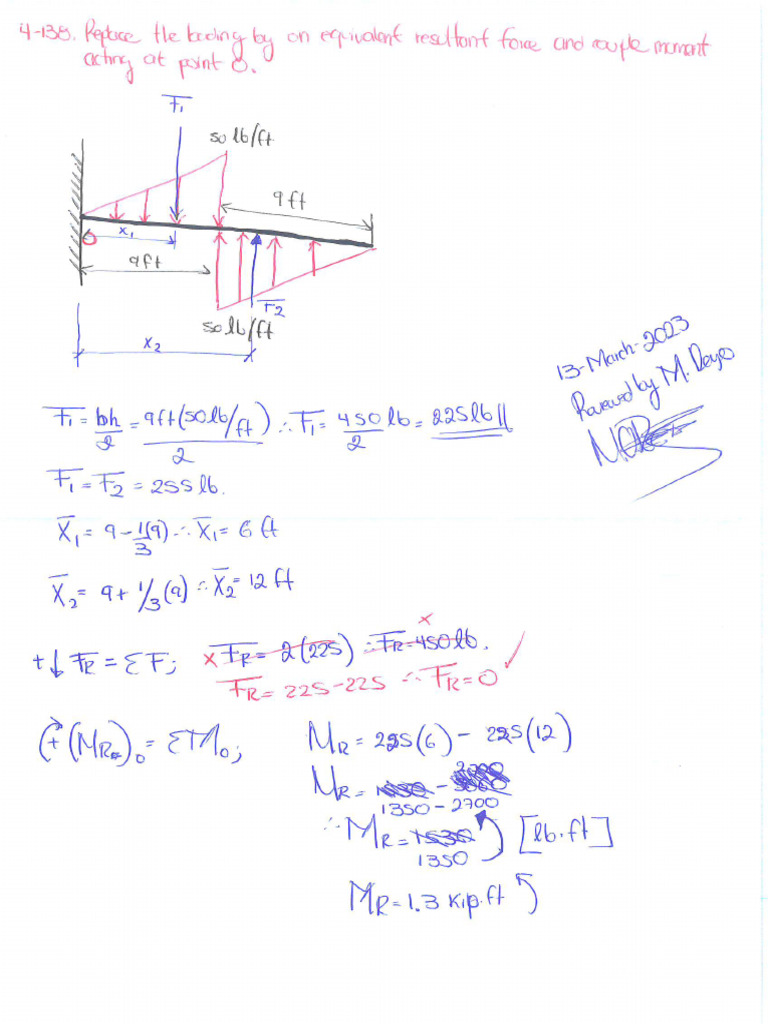 4-138. Replace the loading by an equivalent resultant force and couple moment
acting at point O.
F1
50 lb/ft
9 ft
x1
O
9 ft
F2
50 lb/ft
x2
13-March-2023
Reviewed by M. Deyo
F1 = bh/2 = 9ft(50lb/ft)/2 ∴ F1 = 450 lb/2 = 225 lb //
F1 = F2 = 255 lb.
X̄1 = 9 - 1/3(9) ∴ X̄1 = 6 ft
X̄2 = 9 + 1/3(9) ∴ X̄2 = 12 ft
+↓ FR = ΣF; x FR = 2(225) ∴ FR = 450 lb. x
FR = 225 - 225 ∴ FR = 0 ✓
(+ (MR)o = ΣMo; MR = 225(6) - 225(12)
MR = 2700
1350 - 2700
∴ MR = 1530 [lb.ft]
1350
MR = 1.3 kip.ft